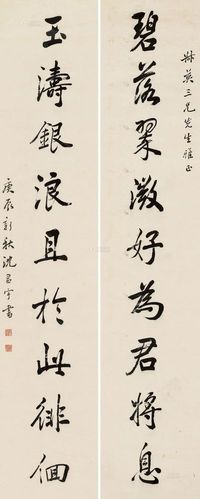 碧落翠微好為君將息
叔英三兄先生雅正
玉濤銀浪且於此徘徊
庚辰新秋沈昌宇書